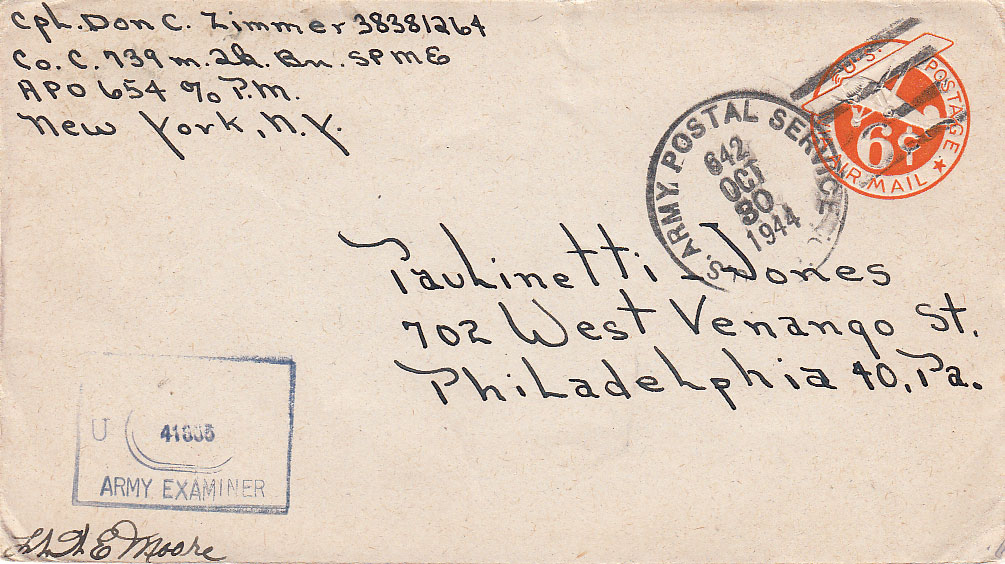 Cpl. Don C. Zimmer 38381264
Co. C. 739 m. Bn. SPME
APO 654 % P.M.
New York, N.Y.
U.S. POSTAGE
6¢
AIR MAIL
S. ARMY POSTAL SERVICE
642
OCT
30
1944
Paulinetti - Jones
702 West Venango St.
Philadelphia 40, Pa.
U
ARMY EXAMINER
E Moore